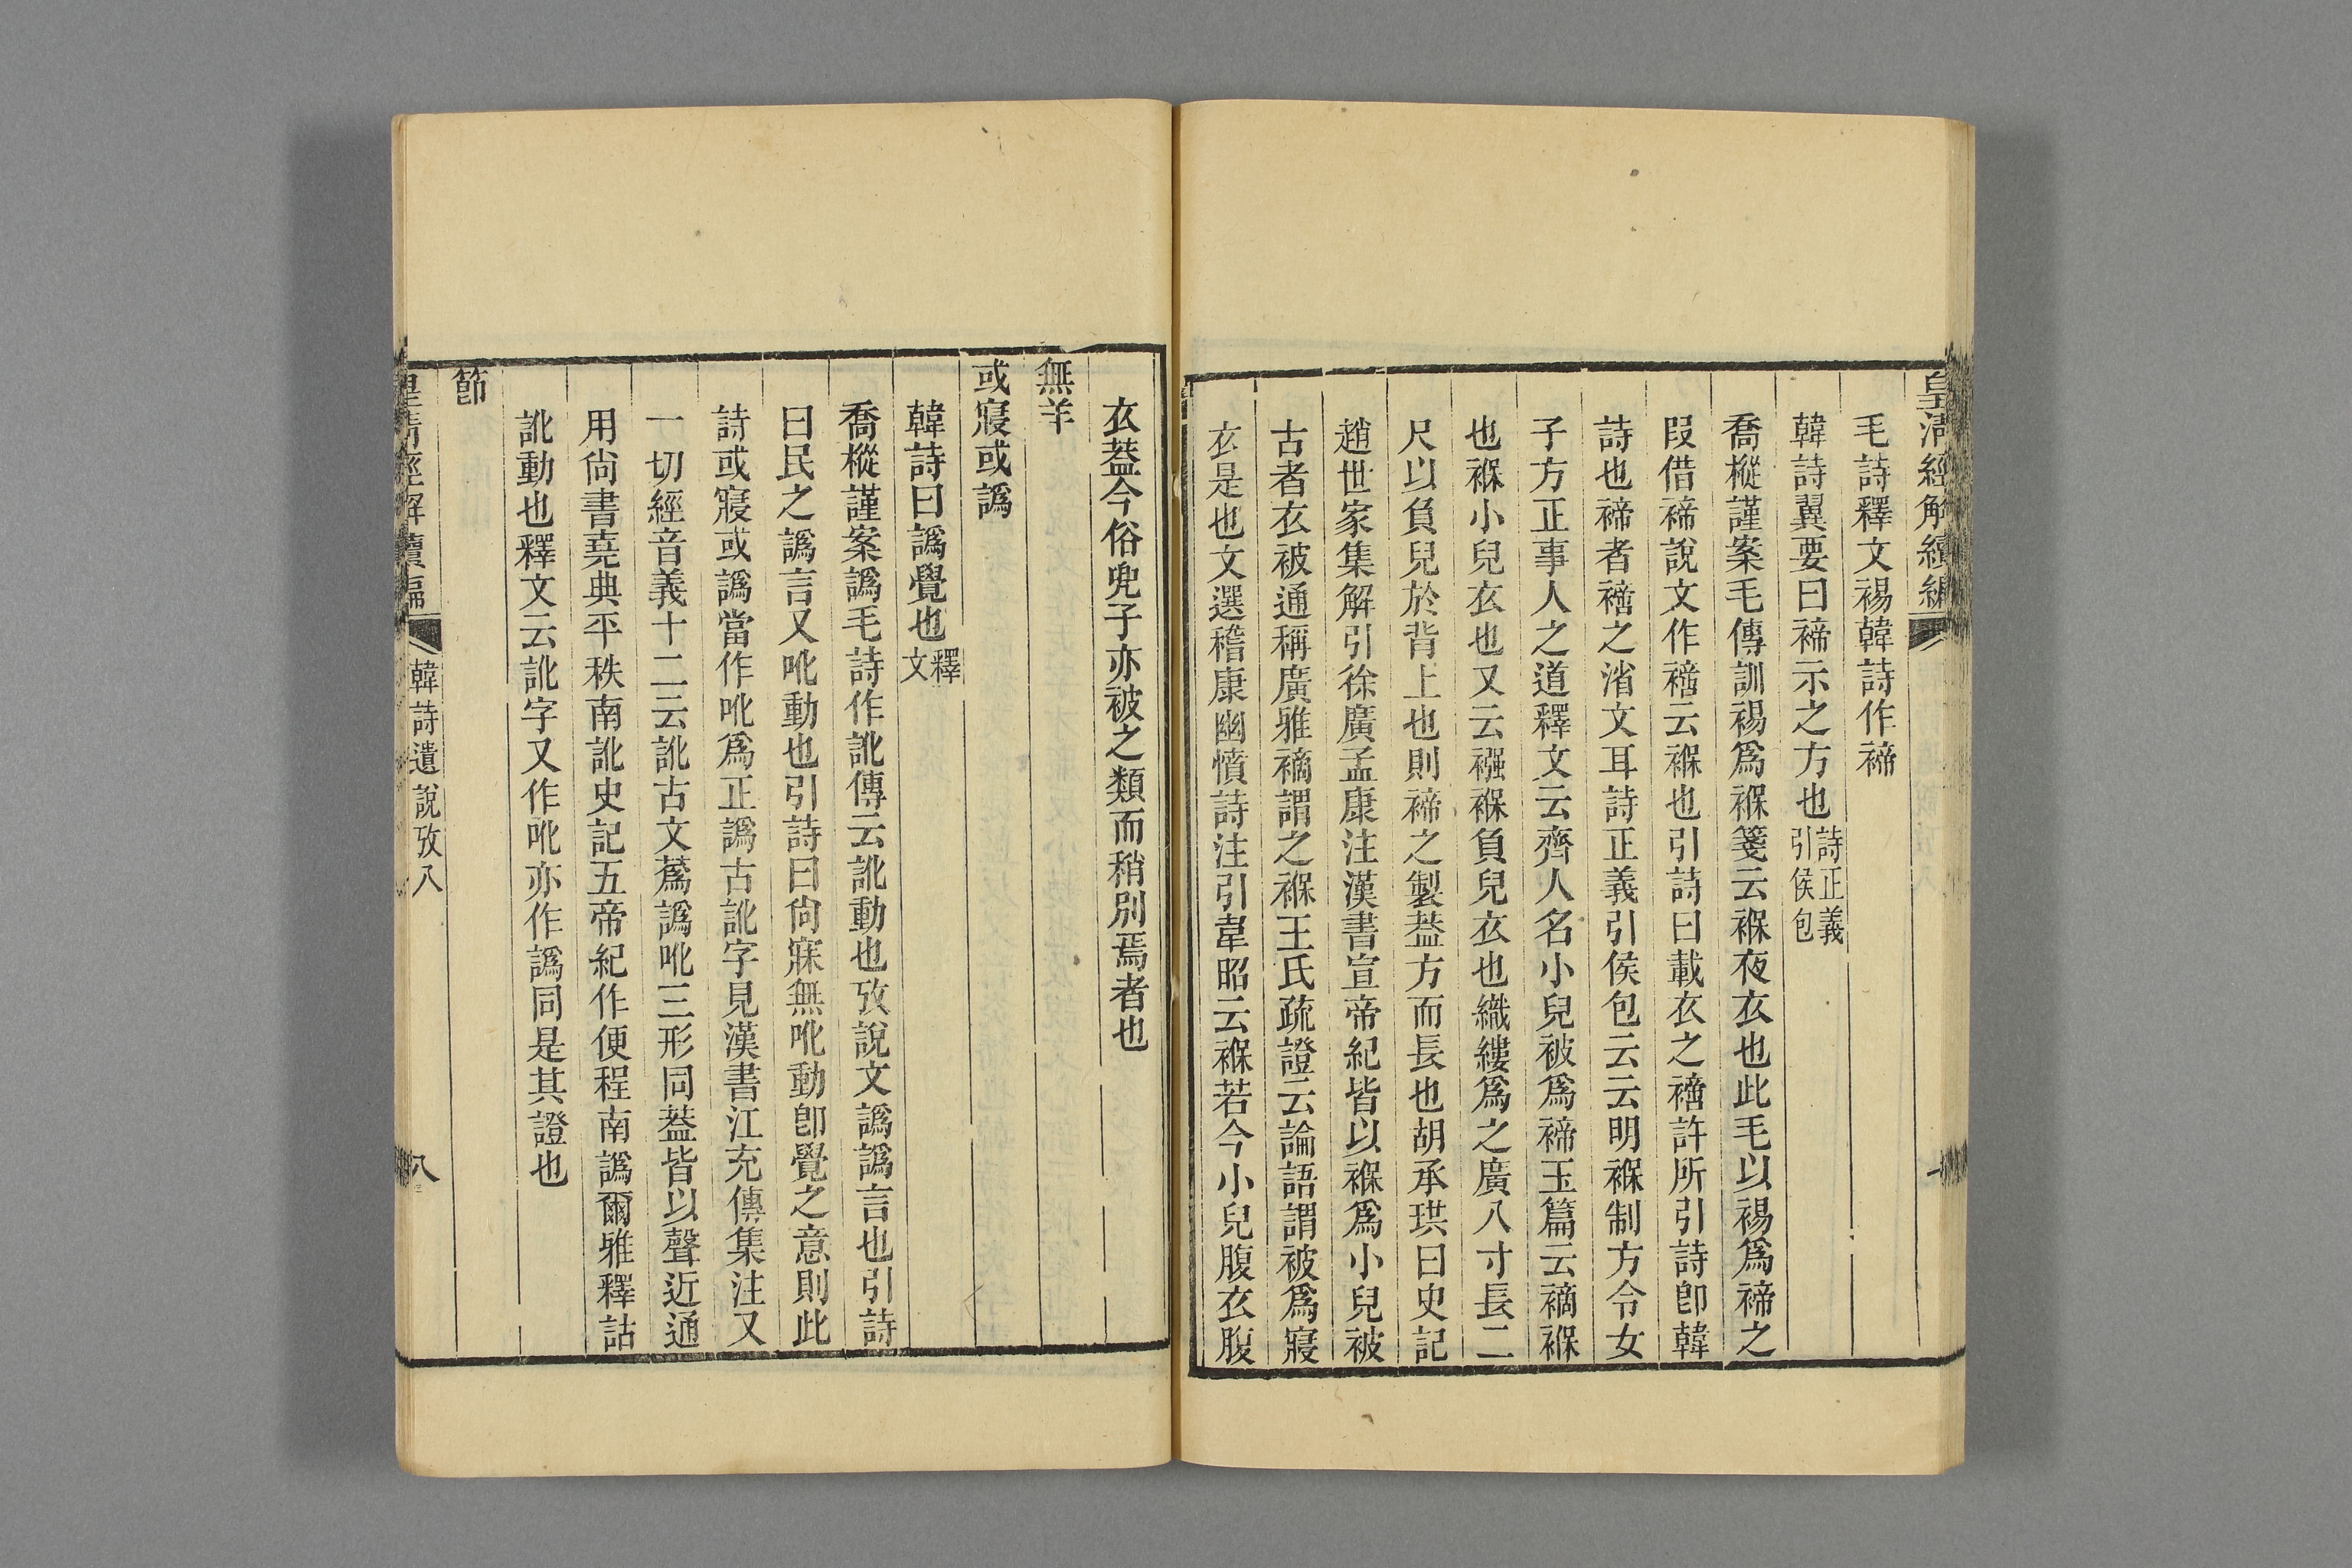 皇清經解續編
毛詩釋文裼韓詩作禘
韓詩翼要曰禘示之方也詩正義引侯包
喬樅謹案毛傳訓裼爲褓箋云褓夜衣也此毛以裼爲禘之
叚借禘說文作䙗云褓也引詩曰載衣之䙗許所引詩卽韓
詩也禘者䙗之渻文耳詩正義引侯包云云明褓制方令女
子方正事人之道釋文云齊人名小兒被爲禘玉篇云䙗褓
也褓小兒衣也又云襁褓負兒衣也織縷爲之廣八寸長二
尺以負兒於背上也則禘之製葢方而長也胡承珙曰史記
趙世家集解引徐廣孟康注漢書宣帝紀皆以褓爲小兒被
古者衣被通稱廣雅䙗謂之褓王氏疏證云論語謂被爲寢
衣是也文選稽康幽憤詩注引韋昭云褓若今小兒腹衣腹
衣葢今俗兜子亦被之類而稍別焉者也
無羊
或寢或譌
韓詩曰譌覺也釋文
喬樅謹案譌毛詩作訛傳云訛動也攷說文譌譌言也引詩
曰民之譌言又吪動也引詩曰尙寐無吪動卽覺之意則此
詩或寢或譌當作吪爲正譌古訛字見漢書江充傳集注又
一切經音義十二云訛古文蔿譌吪三形同葢皆以聲近通
用尙書堯典平秩南訛史記五帝紀作便程南譌爾雅釋詁
訛動也釋文云訛字又作吪亦作譌同是其證也
節
皇清經解續編
韓詩遺說攷八
八